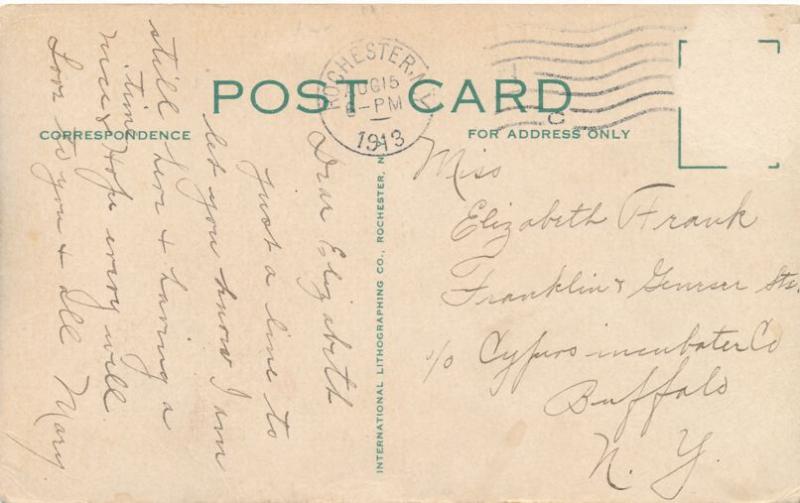 POST CARD
CORRESPONDENCE
FOR ADDRESS ONLY
ROCHESTER, N.Y.
AUG 15
6-PM
1913
C
INTERNATIONAL LITHOGRAPHING CO., ROCHESTER, N
Dear Elizabeth
Just a line to
let you know I am
still here & having a
nice time
& Hope every will
Love to you & all Mary
Miss
Elizabeth Frank
Franklin & Genesee Sts.
c/o Cyphers incubater Co
Buffalo
N. Y.